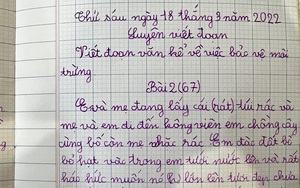 Thứ sáu ngày 18 tháng 3 năm 2022
Luyện viết đoạn
Viết đoạn văn kể về việc bảo vệ môi
trường
Bài 2 (67)
Em và mẹ đang lấy cái (rát) túi rác và
mẹ và em đi đến công viên em chồng cây
cùng bố còn mẹ nhặc rác Em đắc đất bố
bỏ hạt vào trong em tưới nước lên và rất
háo hức muốn nó lớn lên tươi đẹp chưa